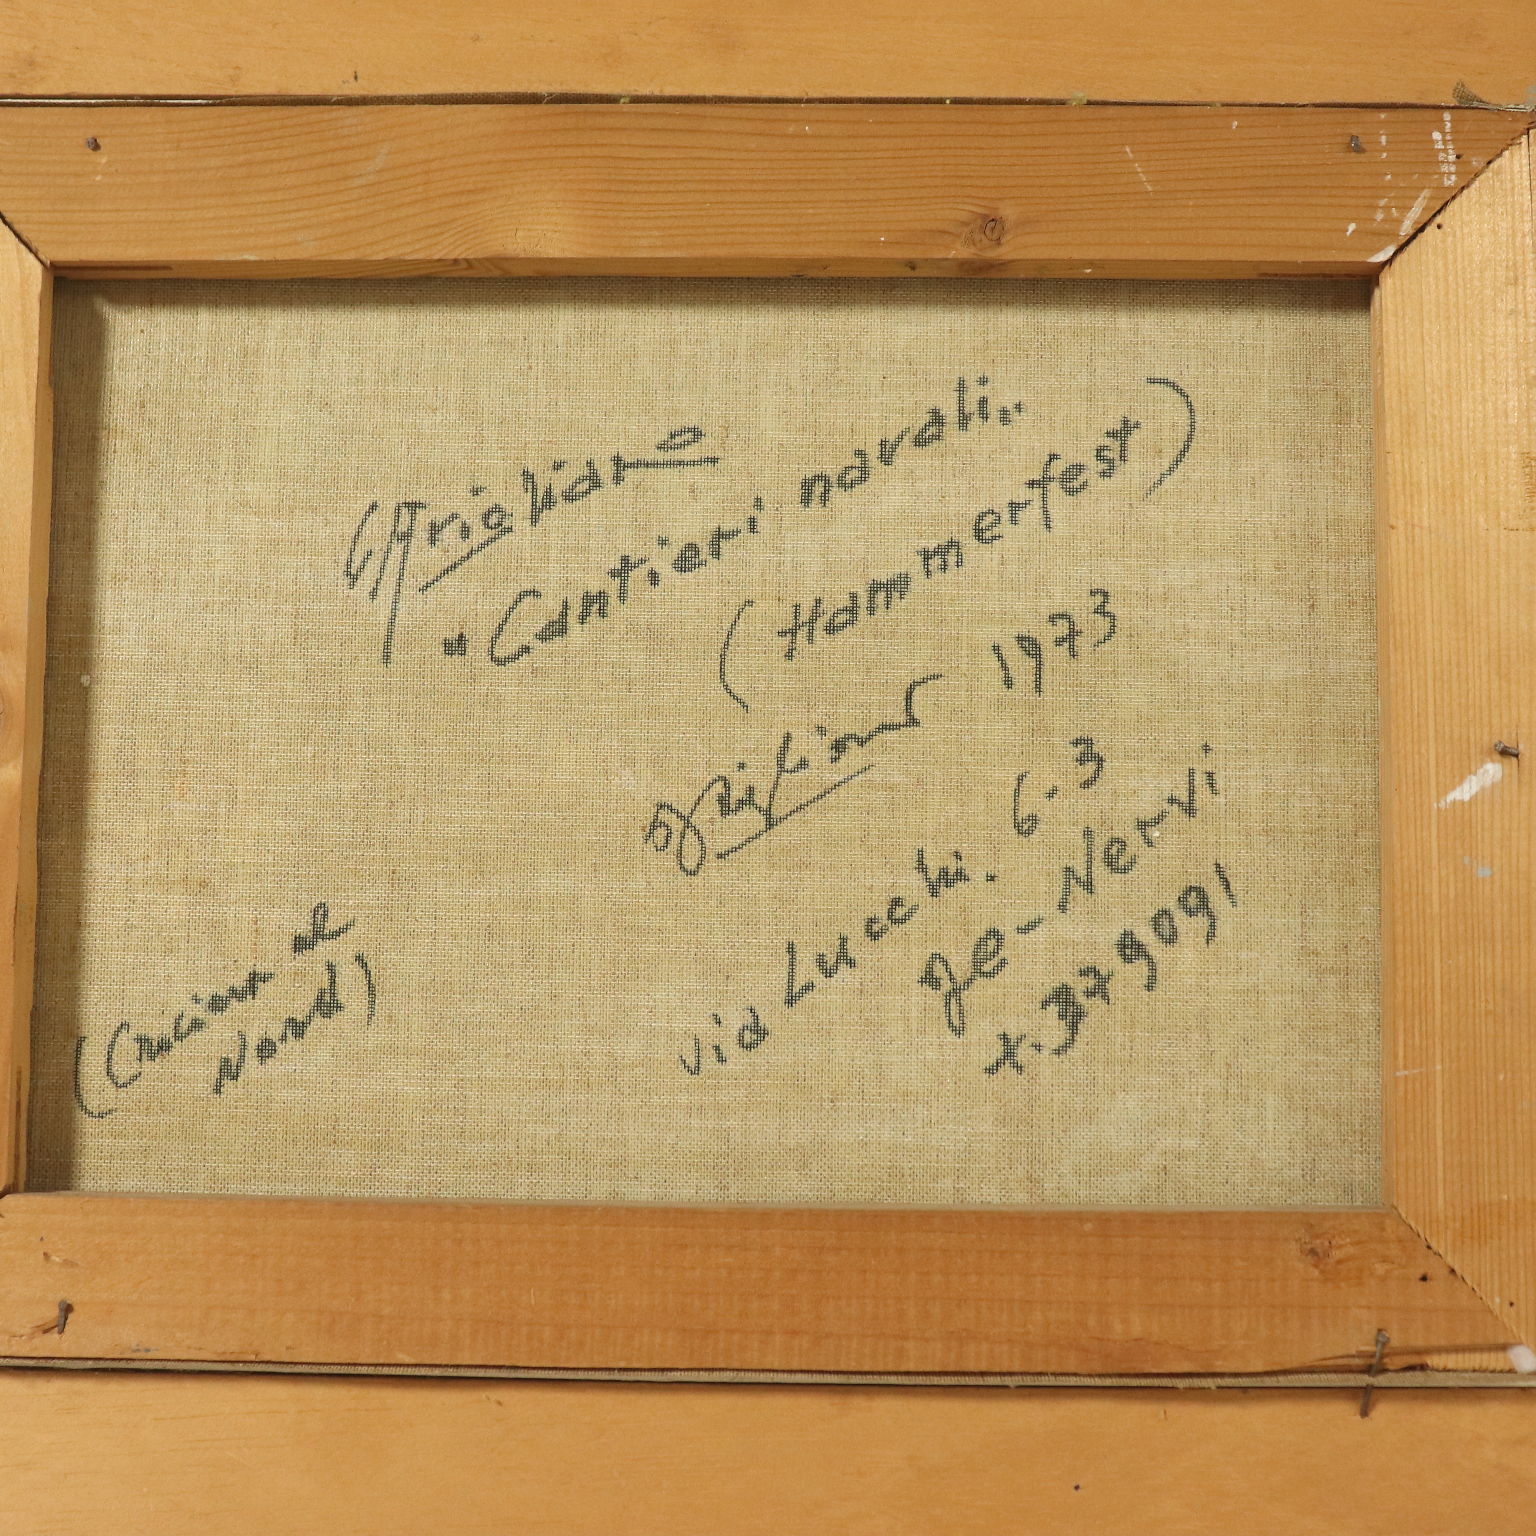 "Cantieri navali..
(Hammerfest)
1973
via Lucchi. 6.3
ge-Nervi
x.379091
(Crociera al
Nord)